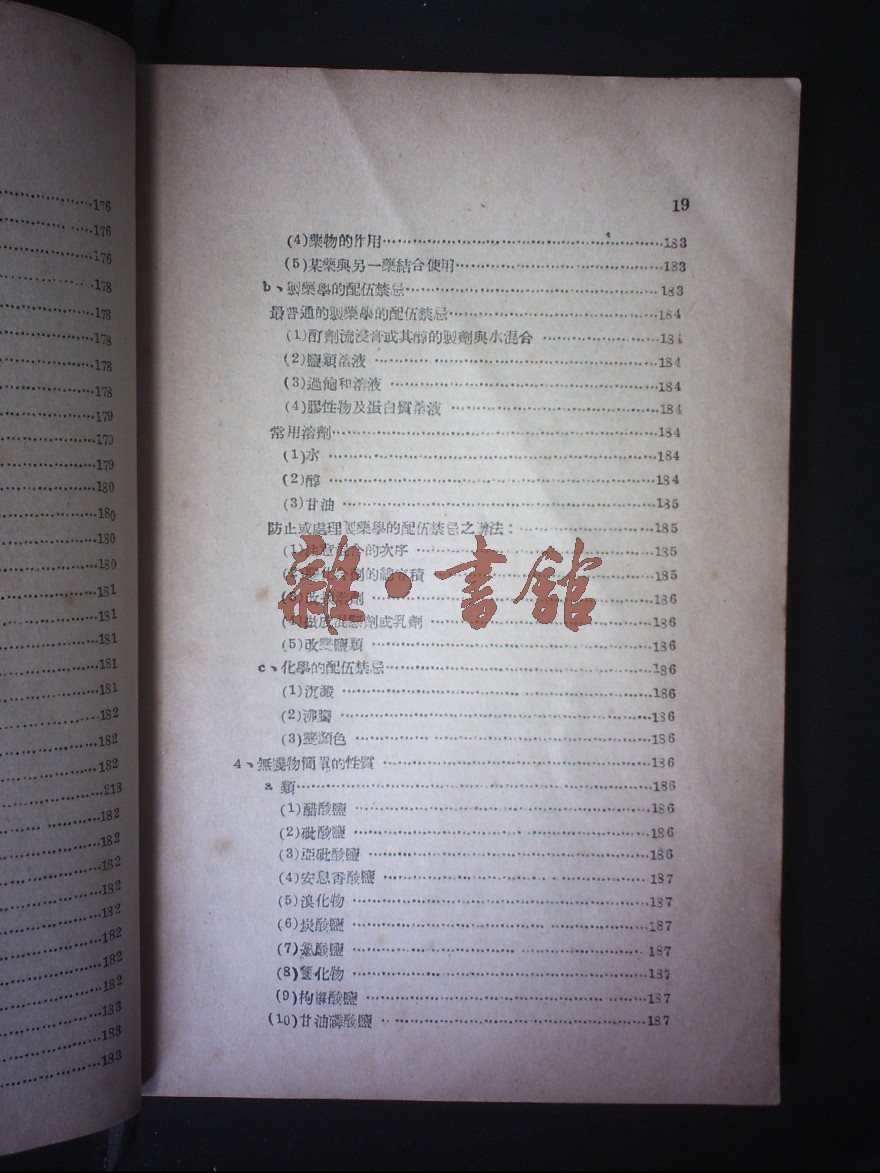 176
176
176
178
178
178
178
178
179
179
179
180
180
180
180
181
181
181
181
181
182
182
182
213
182
182
182
182
182
182
182
182
183
183
183
19
(4)藥物的作用……183
(5)某藥與另一藥結合使用……183
b、製藥學的配伍禁忌……183
最普通的製藥學的配伍禁忌……184
(1)酊劑流浸膏或其醇的製劑與水混合……184
(2)鹽類溶液……184
(3)過飽和溶液……184
(4)膠性物及蛋白質溶液……184
常用溶劑……184
(1)水……184
(2)醇……184
(3)甘油……185
防止或處理製藥學的配伍禁忌之辦法：……185
(1)注意混合的次序……185
的總容積……185
溶劑……186
劑或乳劑……186
(5)改變鹽類……186
c、化學的配伍禁忌……186
(1)沉澱……186
(2)沸騰……186
(3)變顏色……186
4、無機物簡單的性質……186
a 類……186
(1)醋酸鹽……186
(2)砒酸鹽……186
(3)亞砒酸鹽……186
(4)安息香酸鹽……187
(5)溴化物……187
(6)炭酸鹽……187
(7)氯酸鹽……187
(8)氯化物……187
(9)枸櫞酸鹽……187
(10)甘油磷酸鹽……187
雜·書館